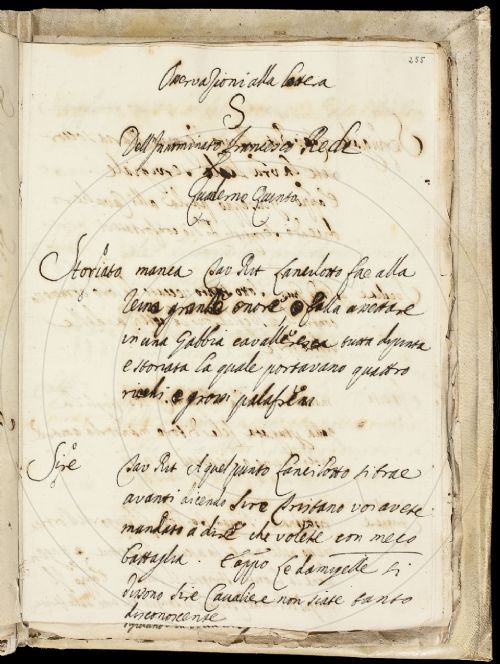 255
Osservazioni alla lettera
S
Dell'Inominato Francesco Redi
Quaderno Quinto
Storiato manca Tav Rit Lancilotto fae alla
Reina grande onore e falla aspettare
in una Gabbia cavalleresca tutta dipinta
e storiata la quale portavano quattro
ricchi e grossi palafreni
Sire Tav Rit A quel punto Lancilotto si trae
avanti dicendo Sire Tristano voi avete
mandato a dire che volete con meco
battaglia. E appo Le damigelle si
dicono Sire Cavaliere non siate tanto
disconoscente